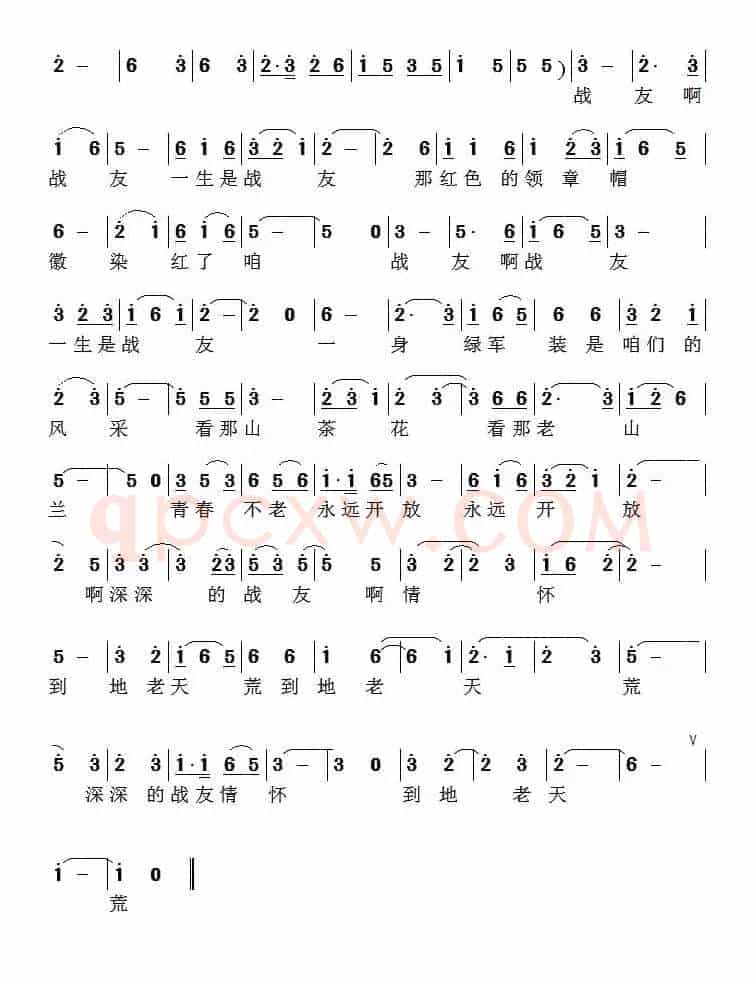 2̇ – | 6 3̇ | 6 3̇ | 2̇·3̇ 2̇ 6 | 1̇ 5 3 5 | 1̇ 5 5 | 5 5 ) | 3̇ – | 2̇· 3̇ |
战 友 啊
1̇ 6 | 5 – | 6 1̇ 6 | 3̇ 2̇ 1̇ | 2̇ – | 2̇ 6 | 1̇ 1̇ 6 | 1̇ 2̇ 3̇ | 1̇ 6 5 |
战 友 一 生 是 战 友 那 红 色 的 领 章 帽
6 – | 2̇ 1̇ | 6 1̇ 6 | 5 – | 5 0 | 3 – | 5· 6 | 1̇ 6 5 | 3 – |
徽 染 红 了 咱 战 友 啊 战 友
3̇ 2̇ 3̇ | 1̇ 6 1̇ | 2̇ – | 2̇ 0 | 6 – | 2̇· 3̇ | 1̇ 6 5 | 6 6 | 3̇ 2̇ 1̇ |
一 生 是 战 友 一 身 绿 军 装 是 咱 们 的
2̇ 3̇ | 5 – | 5 5 5 | 3̇ – | 2̇ 3̇ 1̇ | 2̇ 3̇ | 3̇ 6 6 | 2̇· 3̇ | 1̇ 2̇ 6 |
风 采 看 那 山 茶 花 看 那 老 山
5 – | 5 0 | 3̇ 5 3̇ | 6 5 6 | 1̇·1̇ 6 5 | 3̇ – | 6 1̇ 6 | 3̇ 2̇ 1̇ | 2̇ – |
兰 青 春 不 老 永 远 开 放 永 远 开 放
qpcxw.COM
2̇ 5 | 3̇ 3̇ | 3̇ 2̇ 3̇ | 5̇ 3̇ 5̇ | 5̇ 5̇ | 3̇ 2̇ | 2̇ 3̇ | 1̇ 6 2̇ | 2̇ – |
啊 深 深 的 战 友 啊 情 怀
5 – | 3̇ 2̇ | 1̇ 6 5 | 5 5 | 1̇ 6 | 6 1̇ | 2̇· 1̇ | 2̇ 3̇ | 5̇ – |
到 地 老 天 荒 到 地 老 天 荒
5̇ 3̇ | 2̇ 2̇ | 1̇·1̇ 6 5 | 3 – | 3 0 | 3̇ 2̇ | 2̇ 3̇ | 2̇ – | 6 – | V
深 深 的 战 友 情 怀 到 地 老 天
1̇ – | 1̇ 0 ‖
荒